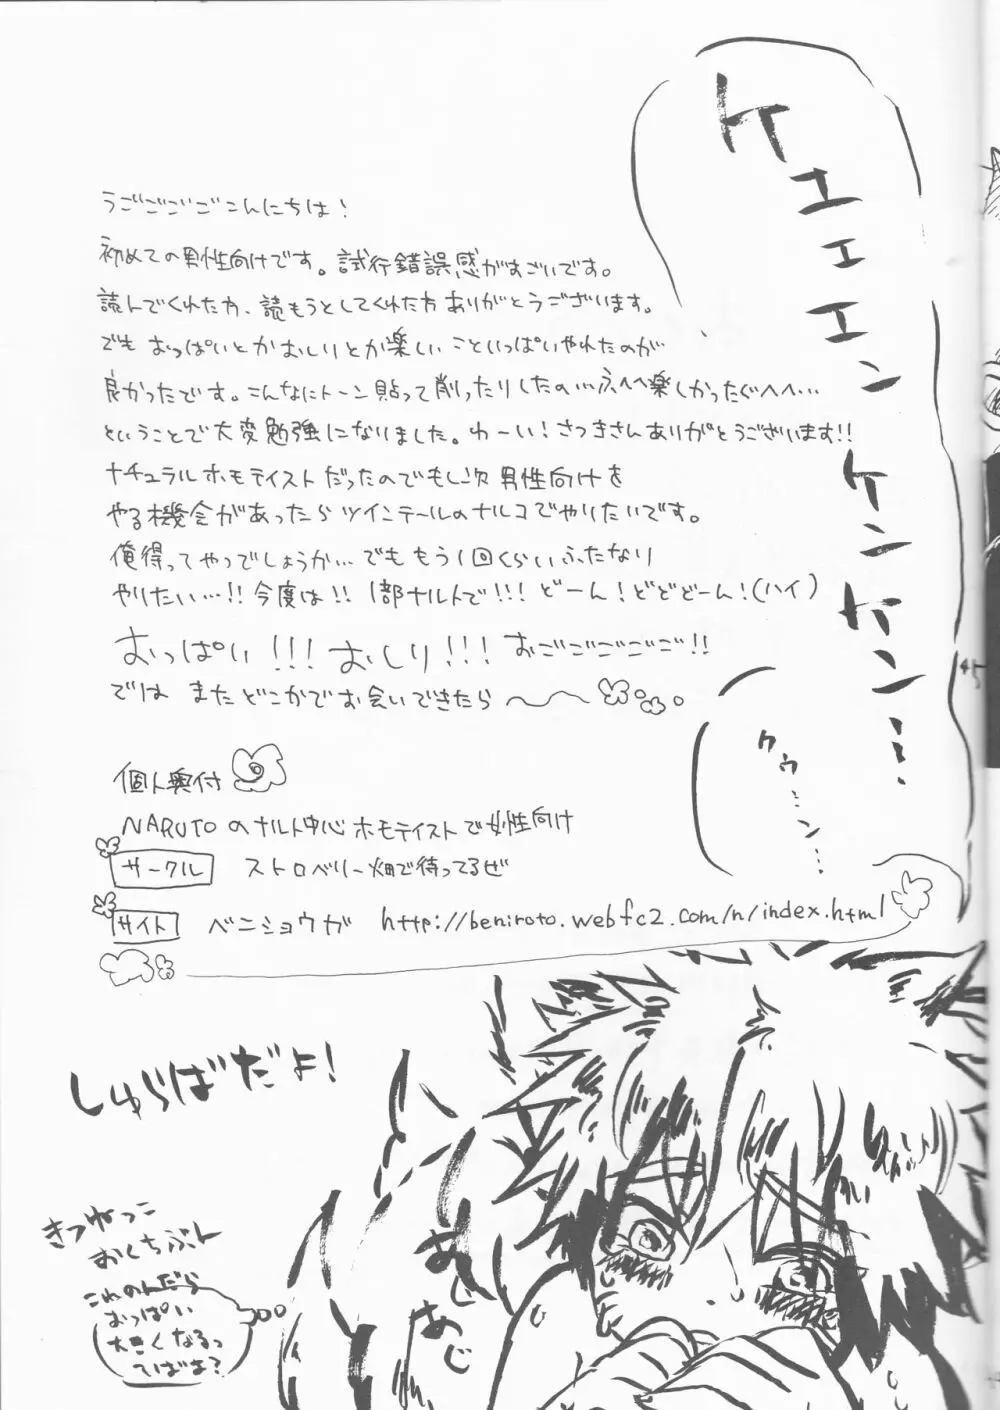 ケエエエンケンケン…
クウ…ン…
うごごごごこんにちは!
初めての男性向けです。試行錯誤感がすごいです。
読んでくれた方、読もうとしてくれた方ありがとうございます。
でも おっぱいとかおしりとか楽しいこといっぱいやれたのが
良かったです。こんなにトーン貼って削ったりしたの…ふへへ楽しかったぐへへ…
ということで大変勉強になりました。わーい!さつきさんありがとうございます!!
ナチュラルホモテイストだったのでもし次男性向けを
やる機会があったらツインテールのナルコでやりたいです。
俺得ってやつでしょうか…でももう1回くらいふたなり
やりたい…!!今度は!!1部ナルトで!!!どーん!どどどーん!(ハイ)
おっぱい!!!おしり!!!おごごごごご!!
では またどこかでお会いできたら〜
個人奥付
NARUTOのナルト中心ホモテイストで女性向け
サークル ストロベリー畑で待ってるぜ
サイト ベニショウガ http://beniroto.webfc2.com/n/index.html
しゅらばだよ!
きつねっこ
おくちぶー
これのんだら
おっぱい
大きくなるっ
てばよ?
あじ
あじ
45